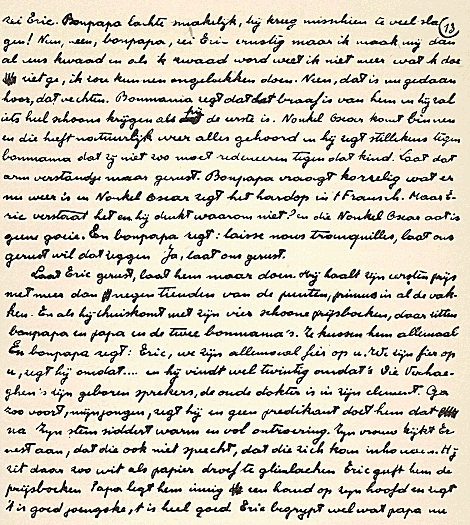 zei Eric. Bonpapa lachte smakelijk, hij kreeg misschien te veel sla- (13)
gen! Nun, neen, bonpapa, zei Eric ernstig maar ik maak mij dan
al eens kwaad en als ik kwaad word weet ik niet meer wat ik doe
niet ge, ik zou kunnen ongelukken doen. Neen, dat is nu gedaan
hoor, dat vechten. Bonmama zegt dat dat braaf is van hem en hij zal
iets heel schoons krijgen als hij de eerste is. Nonkel Oscar komt binnen
en die heeft natuurlijk weer alles gehoord en hij zegt stillekens tegen
bonmama dat zij niet zoo moet redeneeren tegen dat kind. Laat dat
arm verstandje maar gerust. Bonpapa vraagt korzelig wat er
nu weer is en Nonkel Oscar zegt het hardop in 't Fransch. Maar E-
ric verstaat het en hij denkt waarom niet? en die Nonkel Oscar dat is
geene goeie. En bonpapa zegt: laisse nous tranquilles, laat ons
gerust wil dat zeggen. Ja, laat ons gerust.
Laat Eric gerust, laat hem maar doen. Hij haalt zijn eersten prijs
met meer dan negen tienden van de punten, primus in al de vak-
ken. En als hij thuiskomt met zijn vier schoone prijsboeken, daar zitten
bonpapa en papa en de twee bonmama's. Ze kussen hem allemaal
En bonpapa zegt: Eric, we zijn allemaal fier op u. We zijn fier op
u, zegt hij omdat.... en hij vindt wel twintig omdat's Die Verhae-
ghen's zijn geboren sprekers, de oude dokter is in zijn element. Ga
zoo voort, mijn jongen, zegt hij en geen predikant doet hem dat
na Zijn stem siddert warm en vol ontroering. Zijn vrouw kijkt Er-
nest aan, dat die ook niet spreekt, dat die zich kan inhouden. Hij
zit daar zoo wit als papier droef te glimlachen Eric geeft hem de
prijsboeken Papa legt hem innig een hand op zijn hoofd en zegt
't is goed joengske, 't is heel goed Eric begrypt wel wat papa nu